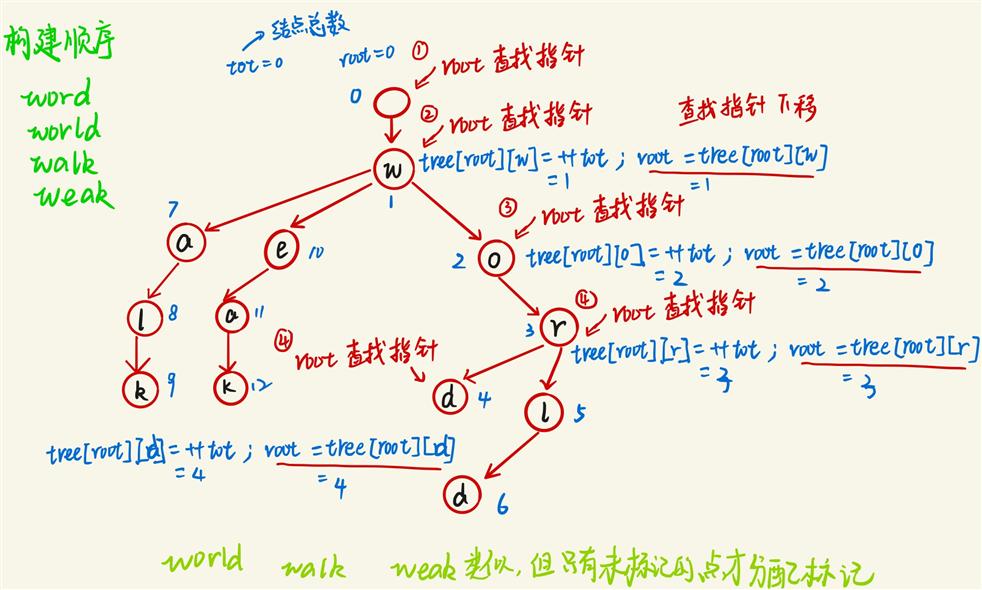 构建顺序
word
world
walk
weak
结点总数
tot=0
root=0
①
root 查找指针
0
②
root 查找指针
查找指针下移
w
1
tree[root][w]=++tot ; root=tree[root][w]
=1
=1
③
root 查找指针
7
a
e
10
2
o
tree[root][o]=++tot ; root=tree[root][o]
=2
=2
④
root 查找指针
l
8
a
11
3
r
tree[root][r]=++tot ; root=tree[root][r]
=3
=3
④
root 查找指针
k
9
k
12
d
4
l
5
tree[root][d]=++tot ; root=tree[root][d]
=4
=4
d
6
world walk weak类似,但只有未标记的点才分配标记